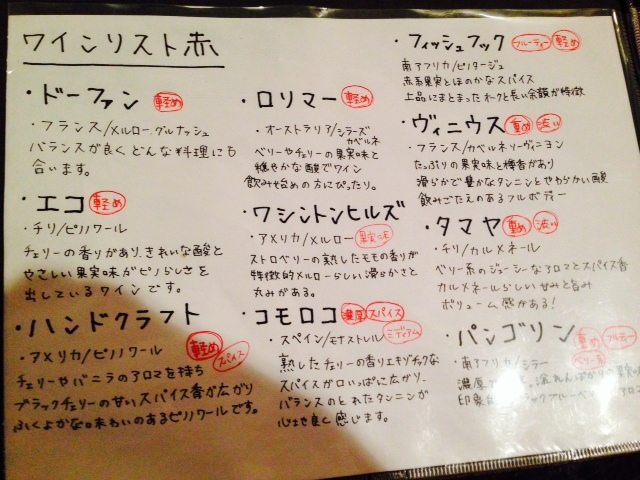 ワインリスト赤
・ドーファン 軽め
・フランス/メルロー、グルナッシュ
バランスが良くどんな料理にも
合います。
・エコ 軽め
・チリ/ピノノワール
チェリーの香りがあり、きれいな酸と
やさしい果実味がピノらしさを
出しているワインです。
・ハンドクラフト
軽め スパイス
・アメリカ/ピノノワール
チェリーやバニラのアロマを持ち
ブラックチェリーの甘いスパイス香が広がり
ふくよかな味わいのあるピノノワールです。
・ロリマー 軽め
・オーストラリア/シラーズ
カベルネ
ベリーやチェリーの果実味と
穏やかな酸でワイン
飲み始めの方にぴったり。
・ワシントンヒルズ
・アメリカ/メルロー 果実味
ストロベリーの熟したモモの香りが
特徴的メルローらしい滑らかさと
丸みがある。
・コモロコ 濃厚 スパイス
・スペイン/モナストレル ミディアム
熟したチェリーの香りエキゾチックな
スパイスが口いっぱいに広がり、
バランスのとれたタンニンが
心地良く感じます。
・フィッシュフック フルーティー 軽め
南アフリカ/ピノタージュ
赤系果実とほのかなスパイス
上品にまとまったオークと長い余韻が特徴
・ヴィニウス 重め 渋い
・フランス/カベルネソーヴィニヨン
たっぷりの果実味と樽香があり
滑らかで豊かなタンニンとやわらかい酸
飲みごたえのあるフルボディー
・タマヤ 重め 渋い
・チリ/カルメネール
ベリー系のジューシーなアロマとスパイス香
カルメネールらしい甘みと旨み
ボリューム感がある!
・パンゴリン 重め
・南アフリカ/シラー
濃厚
印象